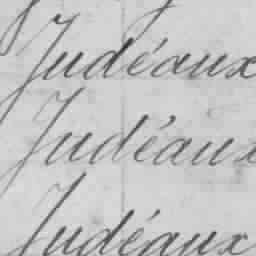 Judéaux
Judéaux
Judéaux